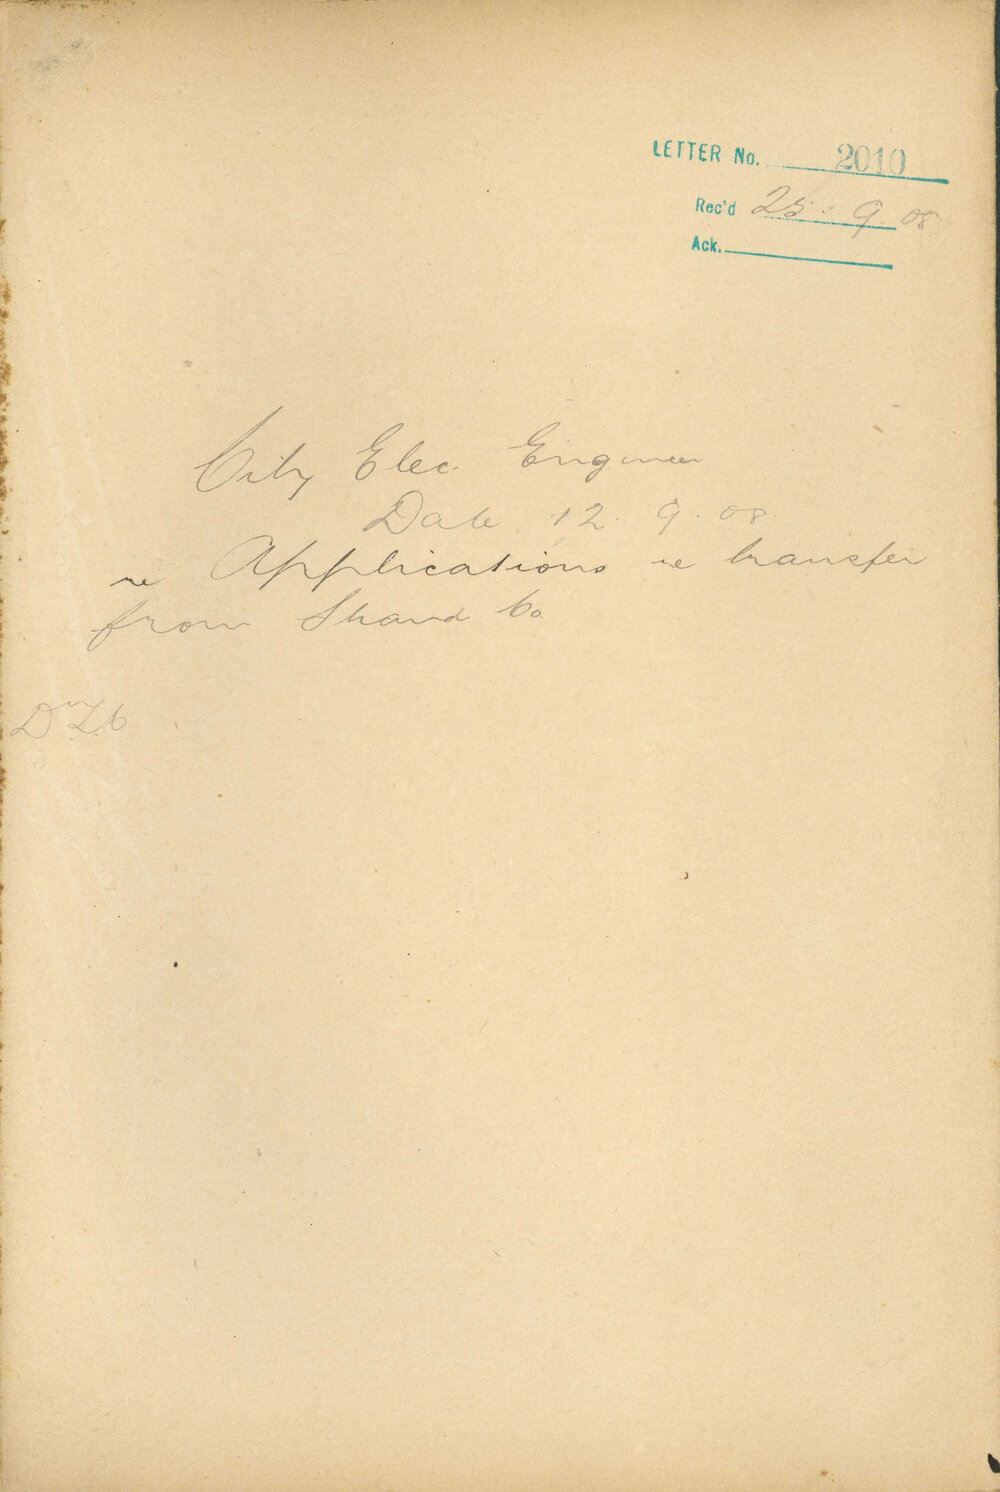 LETTER No. 2010
Rec'd 25 . 9 . 08
Ack.
City Elec. Engineer
Date 12 . 9 . 08
re Applications re transfer
from Shand Co.